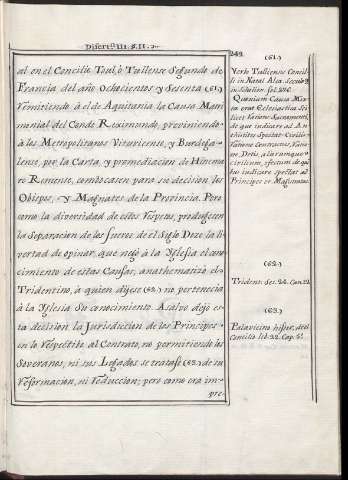 Disert.ⁿ III. §. II.
249.
al en el Concilio Toul, o Tullense Segundo de
Francia del año Ochocientos y Sesenta (61)
Remitiendo à el de Aquitania la Causa Matri
monial del Conde Reximundo, previniendo
à los Metropolitanos Vituricense, y Burdega-
lense, por la Carta, y premediacion de Hincma
ro Remense, combocasen para su decision los
Obispos, y Magnates de la Provincia. Pero
como la diversidad de estos respetos, produgesen
la Separacion de los fueros de el Siglo Doze la li
vertad de opinar, que negò à la Yglesia el cono
cimiento de estas Causas, anathematizò el
Tridentino, à quien dijese (62) no pertenecia
à la Yglesia Su conocimiento. A salvo dejó es
ta decision la Jurisdiccion de los Principes
en lo Respectibo al Contrato, no permitiendo los
Soveranos, ni sus Legados se tratase (63) de su
Reformacion, ni Reduccion; pero como era im
pre-
(61.)
Verb. Tullensis Concil.
li in Natal Alex. Seculo 9
Quoniam Causa Mix
ta erat Ecclesiastica Sci
licet ratione Sacramenti,
de qua indicare ad An
tistites Spectat: Civilis
ratione Contractus, ratio
ne Dotis, aliarumque
civilium, efectum de qui
bus iudicare spectat ad
Principes et Magistratus
(62.)
Trident. Ses. 24. Can. 12
(63.)
Palavicino histor. de el
Concilio lib. 22. Cap. 5.º